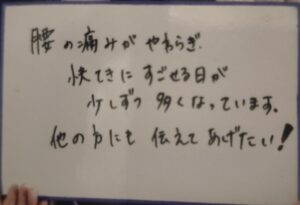 腰の痛みがやわらぎ.
快てきにすごせる日が
少しずつ多くなっています.
他の方にも伝えてあげたい!